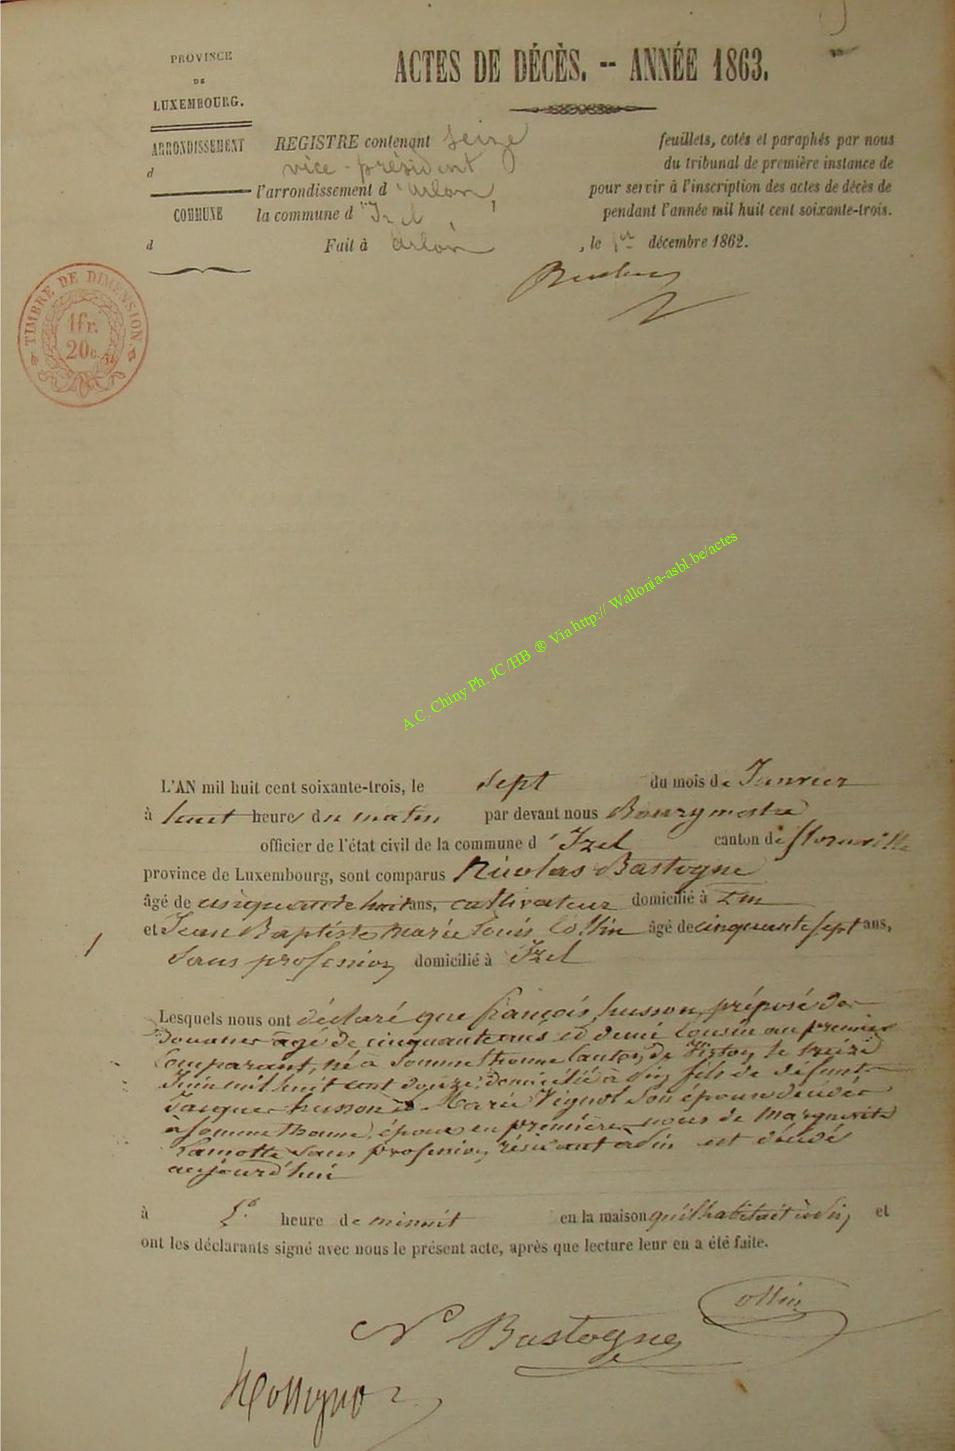 PROVINCE
DE
LUXEMBOURG.
ARRONDISSEMENT
d
COMMUNE
d
ACTES DE DÉCÈS. -- ANNÉE 1863.
REGISTRE contenant seize feuillets, cotés et paraphés par nous
vice-président du tribunal de première instance de
l'arrondissement d'Arlon pour servir à l'inscription des actes de décès de
la commune d'Izel, pendant l'année mil huit cent soixante-trois.
Fait à Arlon, le 1er décembre 1862.
TIMBRE DE DIMENSION.
1fr.
20c.
A.C. Chiny Ph. JC/HB ® Via http:// Wallonia-asbl.be/actes
L'AN mil huit cent soixante-trois, le sept du mois de Janvier
à huit heures du matin par devant nous Bourgmestre
officier de l'état civil de la commune d'Izel canton de florenville
province de Luxembourg, sont comparus Nicolas Bastogne
âgé de cinquante huit ans, cultivateur domicilié à
et Jean Baptiste Marie Louis Collin âgé de cinquante sept ans,
sans profession domicilié à Izel
Lesquels nous ont déclaré que françois husson, préposé de
Douanes âgé de cinquante ans et demi cousin au premier
comparant, né à Sommethonne canton de Virton le treize
Juin mil huit cent douze, domicilié à fils de défunts
Jacques husson & Marie Vignol son épouse décédés
à Sommethonne, époux en premières noces de Marguerite
Lamotte sans profession, résidant est décédé
aujourd'hui
à heure de minuit en la maison qu'il habitait à et
ont les déclarants signé avec nous le présent acte, après que lecture leur en a été faite.
Collin
N Bastogne